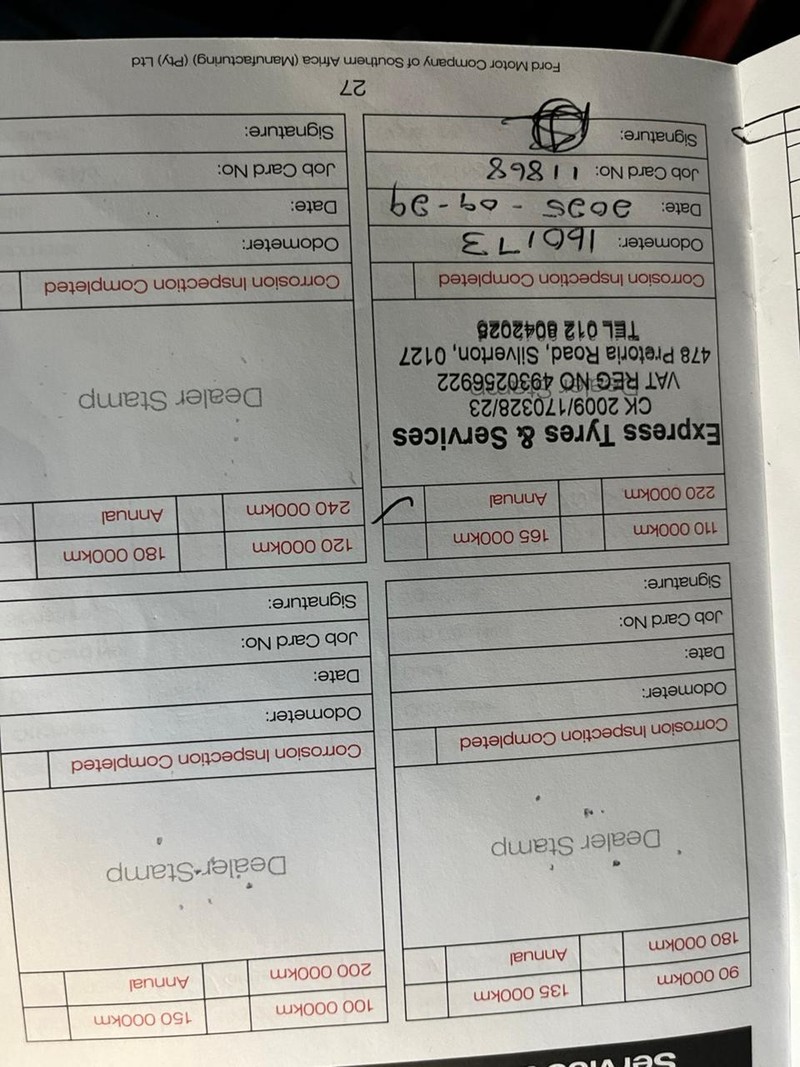 90 000km
135 000km
180 000km
Annual
Dealer Stamp
Corrosion Inspection Completed
Odometer:
Date:
Job Card No:
Signature:
100 000km
150 000km
200 000km
Annual
Dealer Stamp
Corrosion Inspection Completed
Odometer:
Date:
Job Card No:
Signature:
110 000km
165 000km
220 000km
Annual
Express Tyres & Services
CK 2009/170328/23
Dealer Stamp
VAT REG NO 4930256922
478 Pretoria Road, Silverton, 0127
TEL 012
Corrosion Inspection Completed
Odometer: 160173
Date: 2025 - 09-29
Job Card No: 11868
Signature:
120 000km
180 000km
240 000km
Annual
Dealer Stamp
Corrosion Inspection Completed
Odometer:
Date:
Job Card No:
Signature:
27
Ford Motor Company of Southern Africa (Manufacturing) (Pty) Ltd